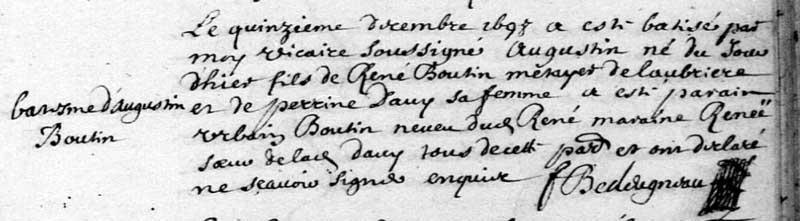 Le quinzieme decembre 1697 a esté batisé par
moy vicaire soussigné Augustin né du jour
d'hier fils de René Boutin métayer de laubriere
et de perrine Davy sa femme a esté parain
urbain Boutin neveu dud René maraine Renée
soeur de lad davy tous de cett par et ont declaré
ne scavoir signer enquis
batizme d'Augustin
Boutin